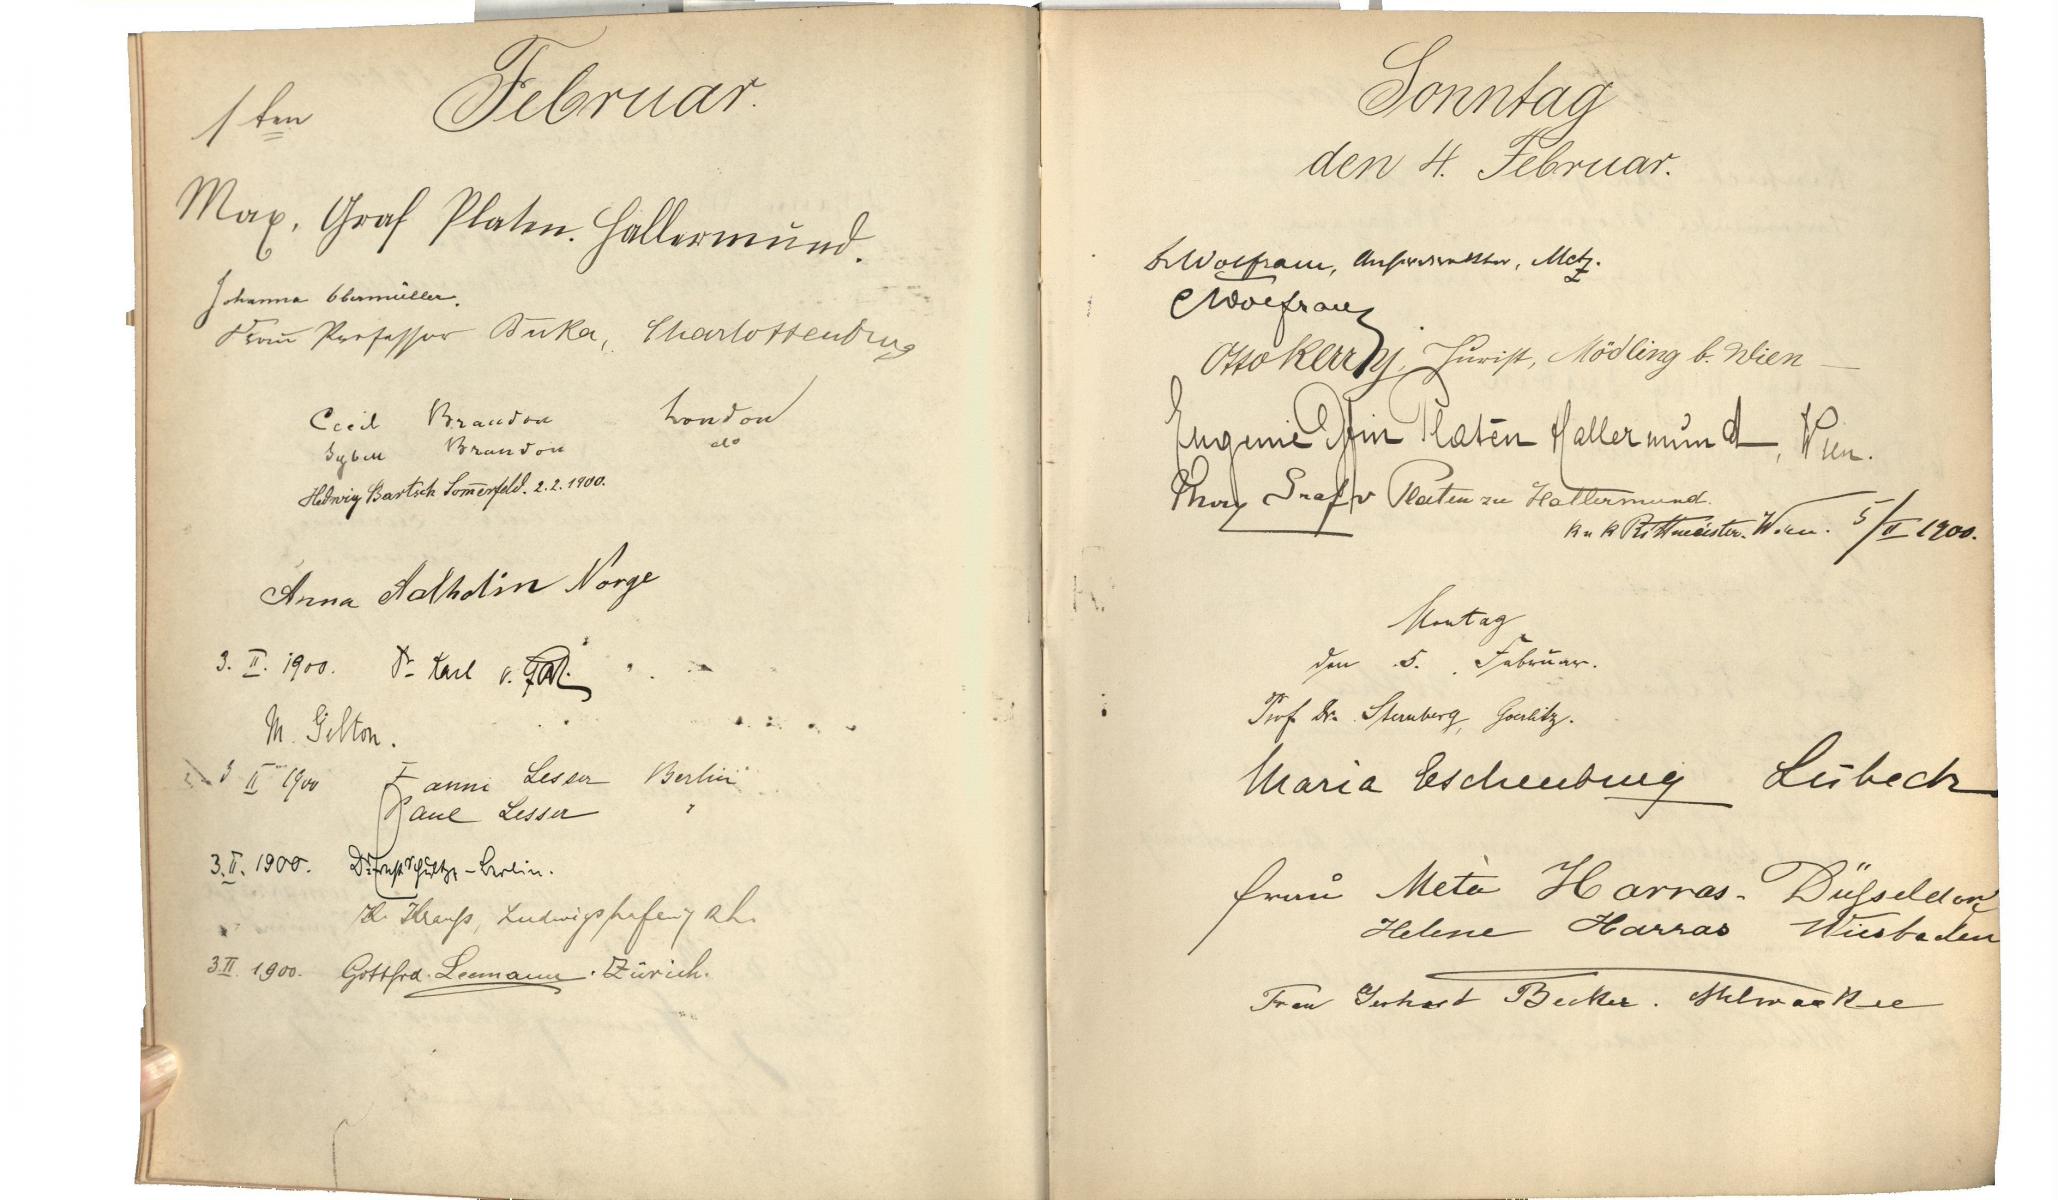 1ten Februar.
Max. Graf Platen. Hallermund.
Johanna Obermüller.
Frau Professor Duka, Charlottenburg
Cecil Brandon London
Sybell Brandon do
Hedwig Bartsch Somerfeld. 2.2.1900.
Anna Norge
3. II. 1900. Dr Karl v.
M. Gilton.
3 II 1900 Fanni Lesser Berlin
Paul Lesser "
3. II. 1900. Dr. Ernst Schultze - Berlin.
Krauss, Ludwigshafen a Rh.
3 II. 1900. Gottfrd. Leemann. Zürich.
Sonntag
den 4. Februar.
Dr Wolfram, Metz.
Wolfram
Otto Kerry, Jurist, Mödling b. Wien —
Eugenie Gfin Platen Hallermund, Wien.
Graf v Platen zu Hallermund.
K u K Rittmeister. Wien. 5/II 1900.
Montag
den 5. Februar.
Prof. Dr. Sternberg, Goerlitz.
Maria Eschenburg Lübeck
Frau Meta Harras - Düsseldorf
Helene Harras Wiesbaden
Frau Gerhard Becker. Milwaukee